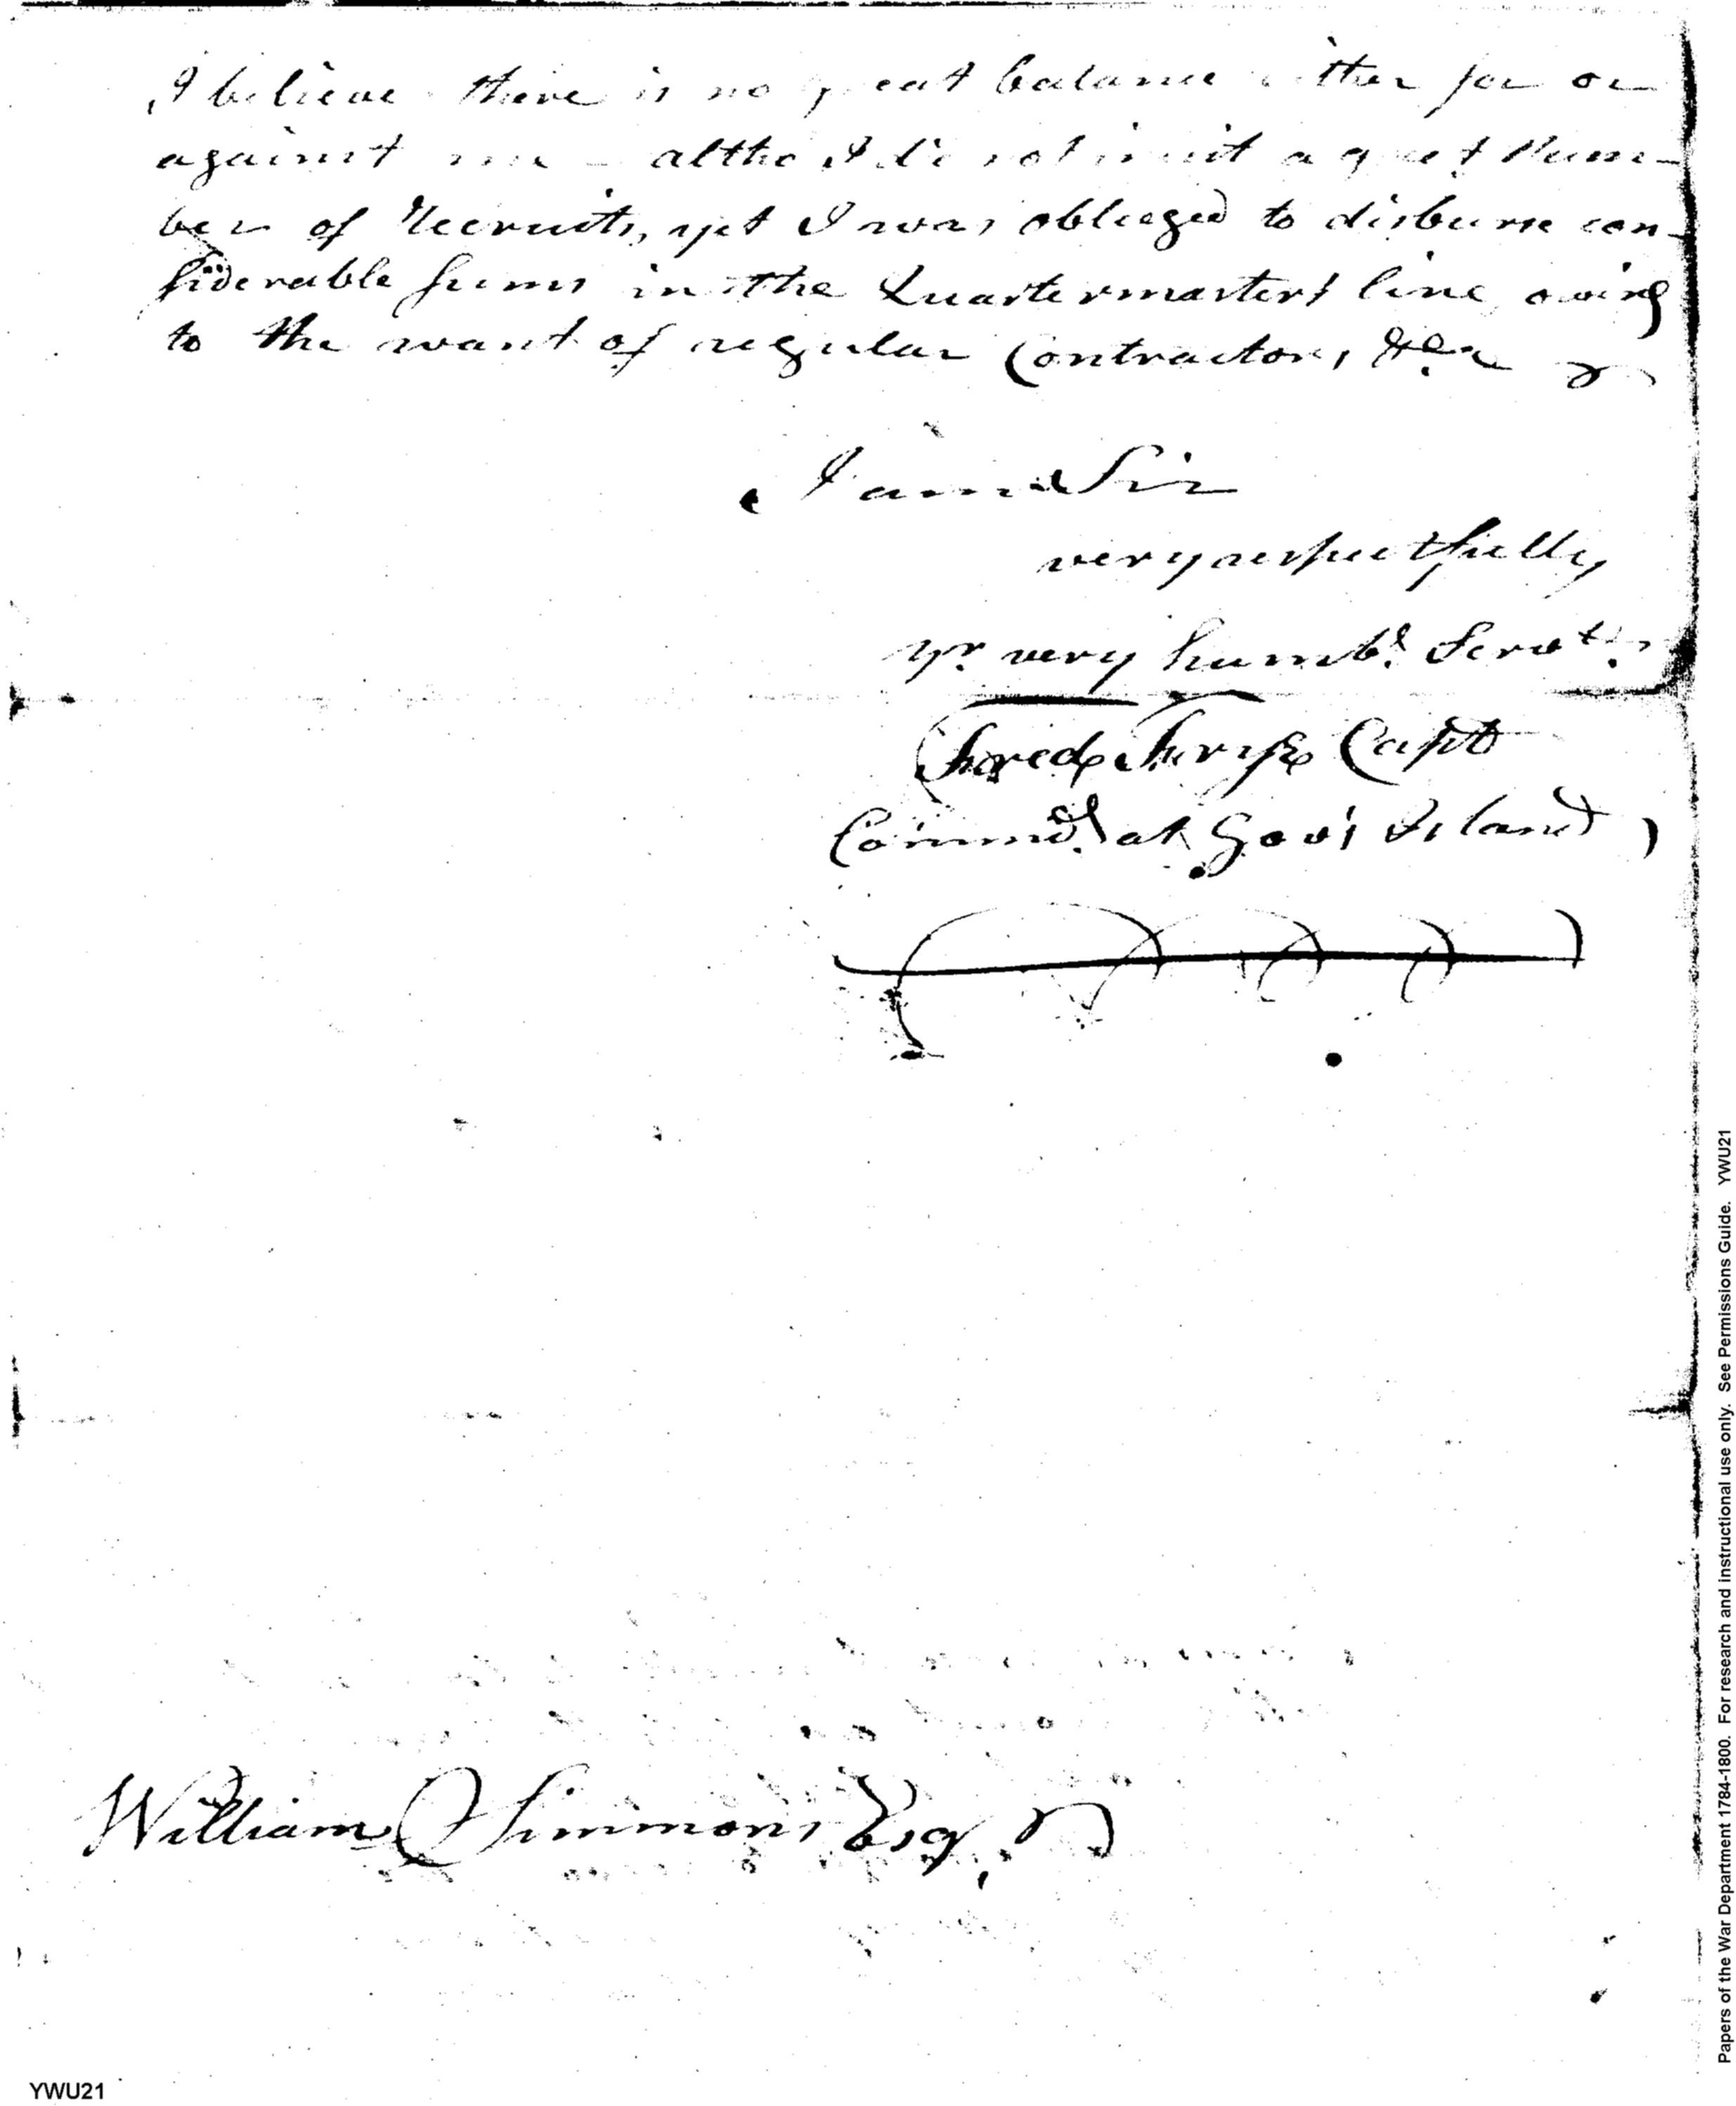 I believe there is no great balance either for or
against me - altho I did not inlist a great Num-
ber of Recruits, yet I was obleeged to disburse con-
siderable sums in the Quartermasters line owing
to the want of regular Contractors, &ca
I am Sir
very respectfully
yr. very humbl. Servt.
Fredk Frye Capt
Commdt. at Gov's Island
William Simmons Esq,
YWU21
Papers of the War Department 1784-1800. For research and instructional use only. See Permissions Guide. YWU21